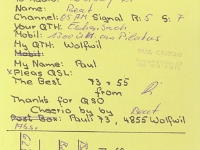 Name: Beat
Channel: 05 AM Signal R: 5 S: 7
Your QTH:
Mobil: 1300 üM. am Pilatus
My QTH: Wolfwil
Mobil:
My Name: Paul
x Pleas QSL:
The Best 73 + 55
from
Thanks for QSO
Cheerio by by Beat
Post Box: Pauli 73, 4855 Wolfwil